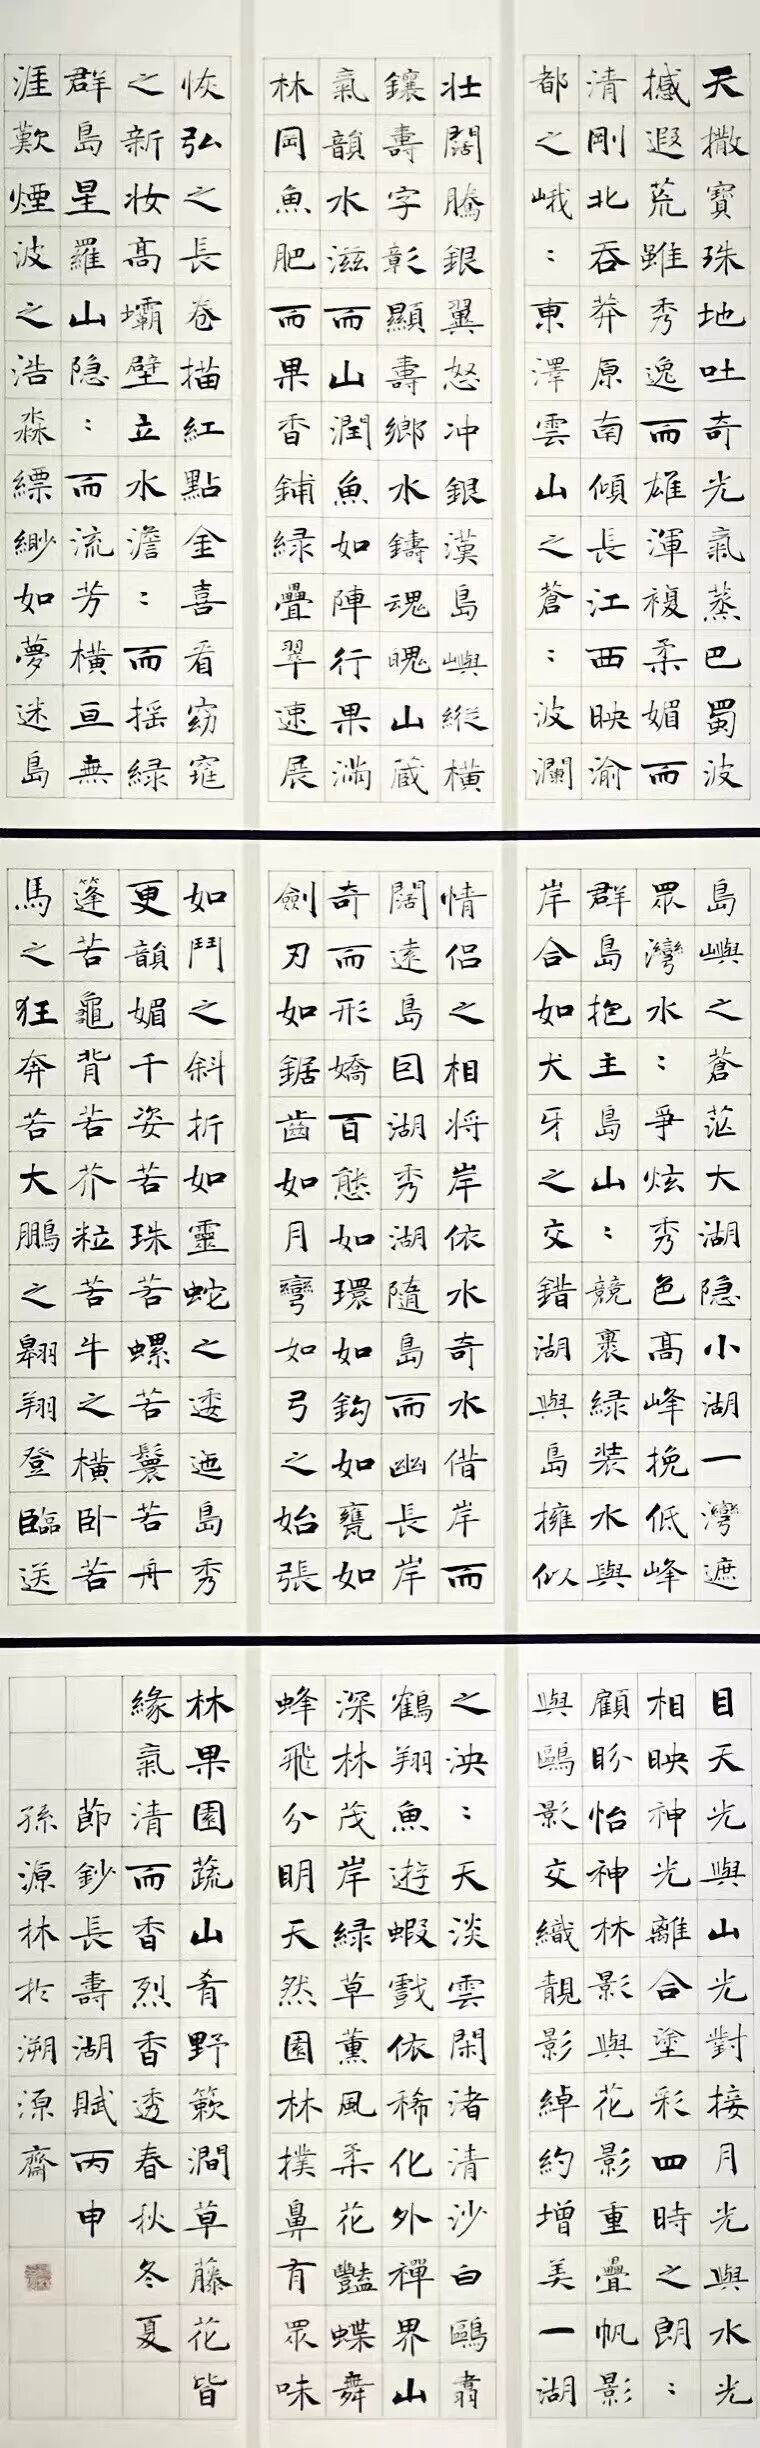 天撒寶珠地吐奇光氣蒸巴蜀波
撼遐荒雖秀逸而雄渾複柔媚而
清剛北吞莽原南傾長江西映渝
都之峨：東澤雲山之蒼：波瀾
壯闊騰銀翼怒冲銀漢島嶼縱橫
鑲壽字彰顯壽鄉水鑄魂魄山蔵
氣韻水滋而山潤魚如陣行果滿
林岡魚肥而果香鋪綠疊翠速展
恢弘之長卷描紅點金喜看窈窕
之新妝高壩壁立水澹：而摇綠
群島星羅山隐：而流芳橫亘無
涯歎煙波之浩淼縹緲如夢迷島
島嶼之蒼茫大湖隐小湖一灣遮
眾灣水：爭炫秀色高峰挽低峰
群島抱主島山：競裹綠装水與
岸合如犬牙之交錯湖與島擁似
情侣之相将岸依水奇水借岸而
闊遠島因湖秀湖隨島而幽長岸
奇而形嬌百態如環如鈎如甕如
劍刃如鋸齒如月彎如弓之始張
如鬥之斜折如靈蛇之逶迤島秀
更韻媚千姿若珠若螺若鬟若舟
篷若龜背若芥粒若牛之橫卧若
馬之狂奔若大鵬之翱翔登臨送
目天光與山光對接月光與水光
相映神光離合塗彩四時之朗：
顧盼怡神林影與花影重疊帆影
與鷗影交織靚影綽約增美一湖
之泱：天淡雲閑渚清沙白鷗翥
鶴翔魚遊蝦戲依稀化外禪界山
深林茂岸綠草薰風柔花豔蝶舞
蜂飛分明天然園林撲鼻育眾味
林果園蔬山肴野簌澗草藤花皆
緣氣清而香烈香透春秋冬夏
節鈔長壽湖賦丙申
孫源林於溯源齋